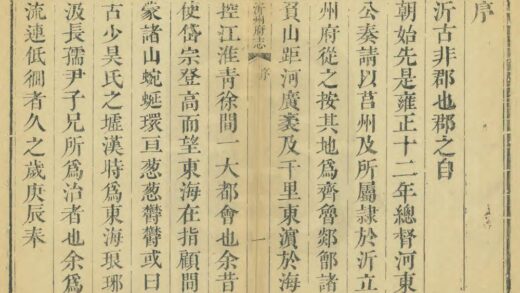 序
沂古非郡也郡之自
朝始先是雍正十二年總督河東
公奏請以莒州及所屬隷於沂立
州府從之按其地爲齊魯郯鄫諸
負山距河廣袤及千里東濵於海
沂州府志
序
一
控江淮青徐間一大都會也余昔
使岱宗登高而望東海在指顧間
蒙諸山蜿蜒環亘葱葱鬱鬱或曰
古少昊氏之墟漢時爲東海琅琊
汲長孺尹子兄所爲治者也余爲
流連低徊者久之歲庚辰奉